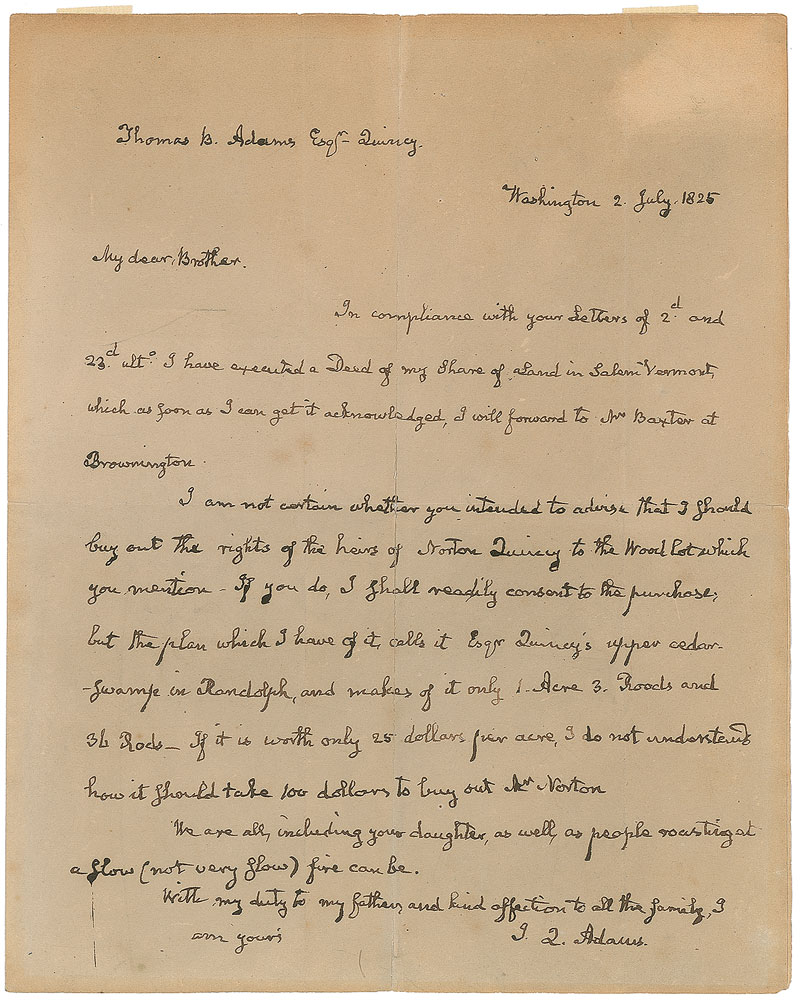 Thomas B. Adams Esqr- Quincy.
Washington 2. July. 1825
My dear Brother.
In compliance with your Letters of 2.d and
23.d ulto. I have executed a Deed of my Share of Land in Salem Vermont,
which as soon as I can get it acknowledged, I will forward to Mr Baxter at
Brownington.
I am not certain whether you intended to advise that I should
buy out the rights of the heirs of Norton Quincy to the Wood Lot which
you mention - If you do, I shall readily consent to the purchase;
but the plan which I have of it, calls it Esqr Quincy's upper cedar-
-swamp in Randolph, and makes of it only 1. Acre 3. Roods and
36 Rods_ If it is worth only 25 dollars per acre, I do not understand
how it should take 100 dollars to buy out Mr Norton
We are all, including your daughter, as well, as people roasting at
a slow (not very slow) fire can be.
With my duty to my father, and kind affection to all the family, I
am yours
J. Q. Adams.